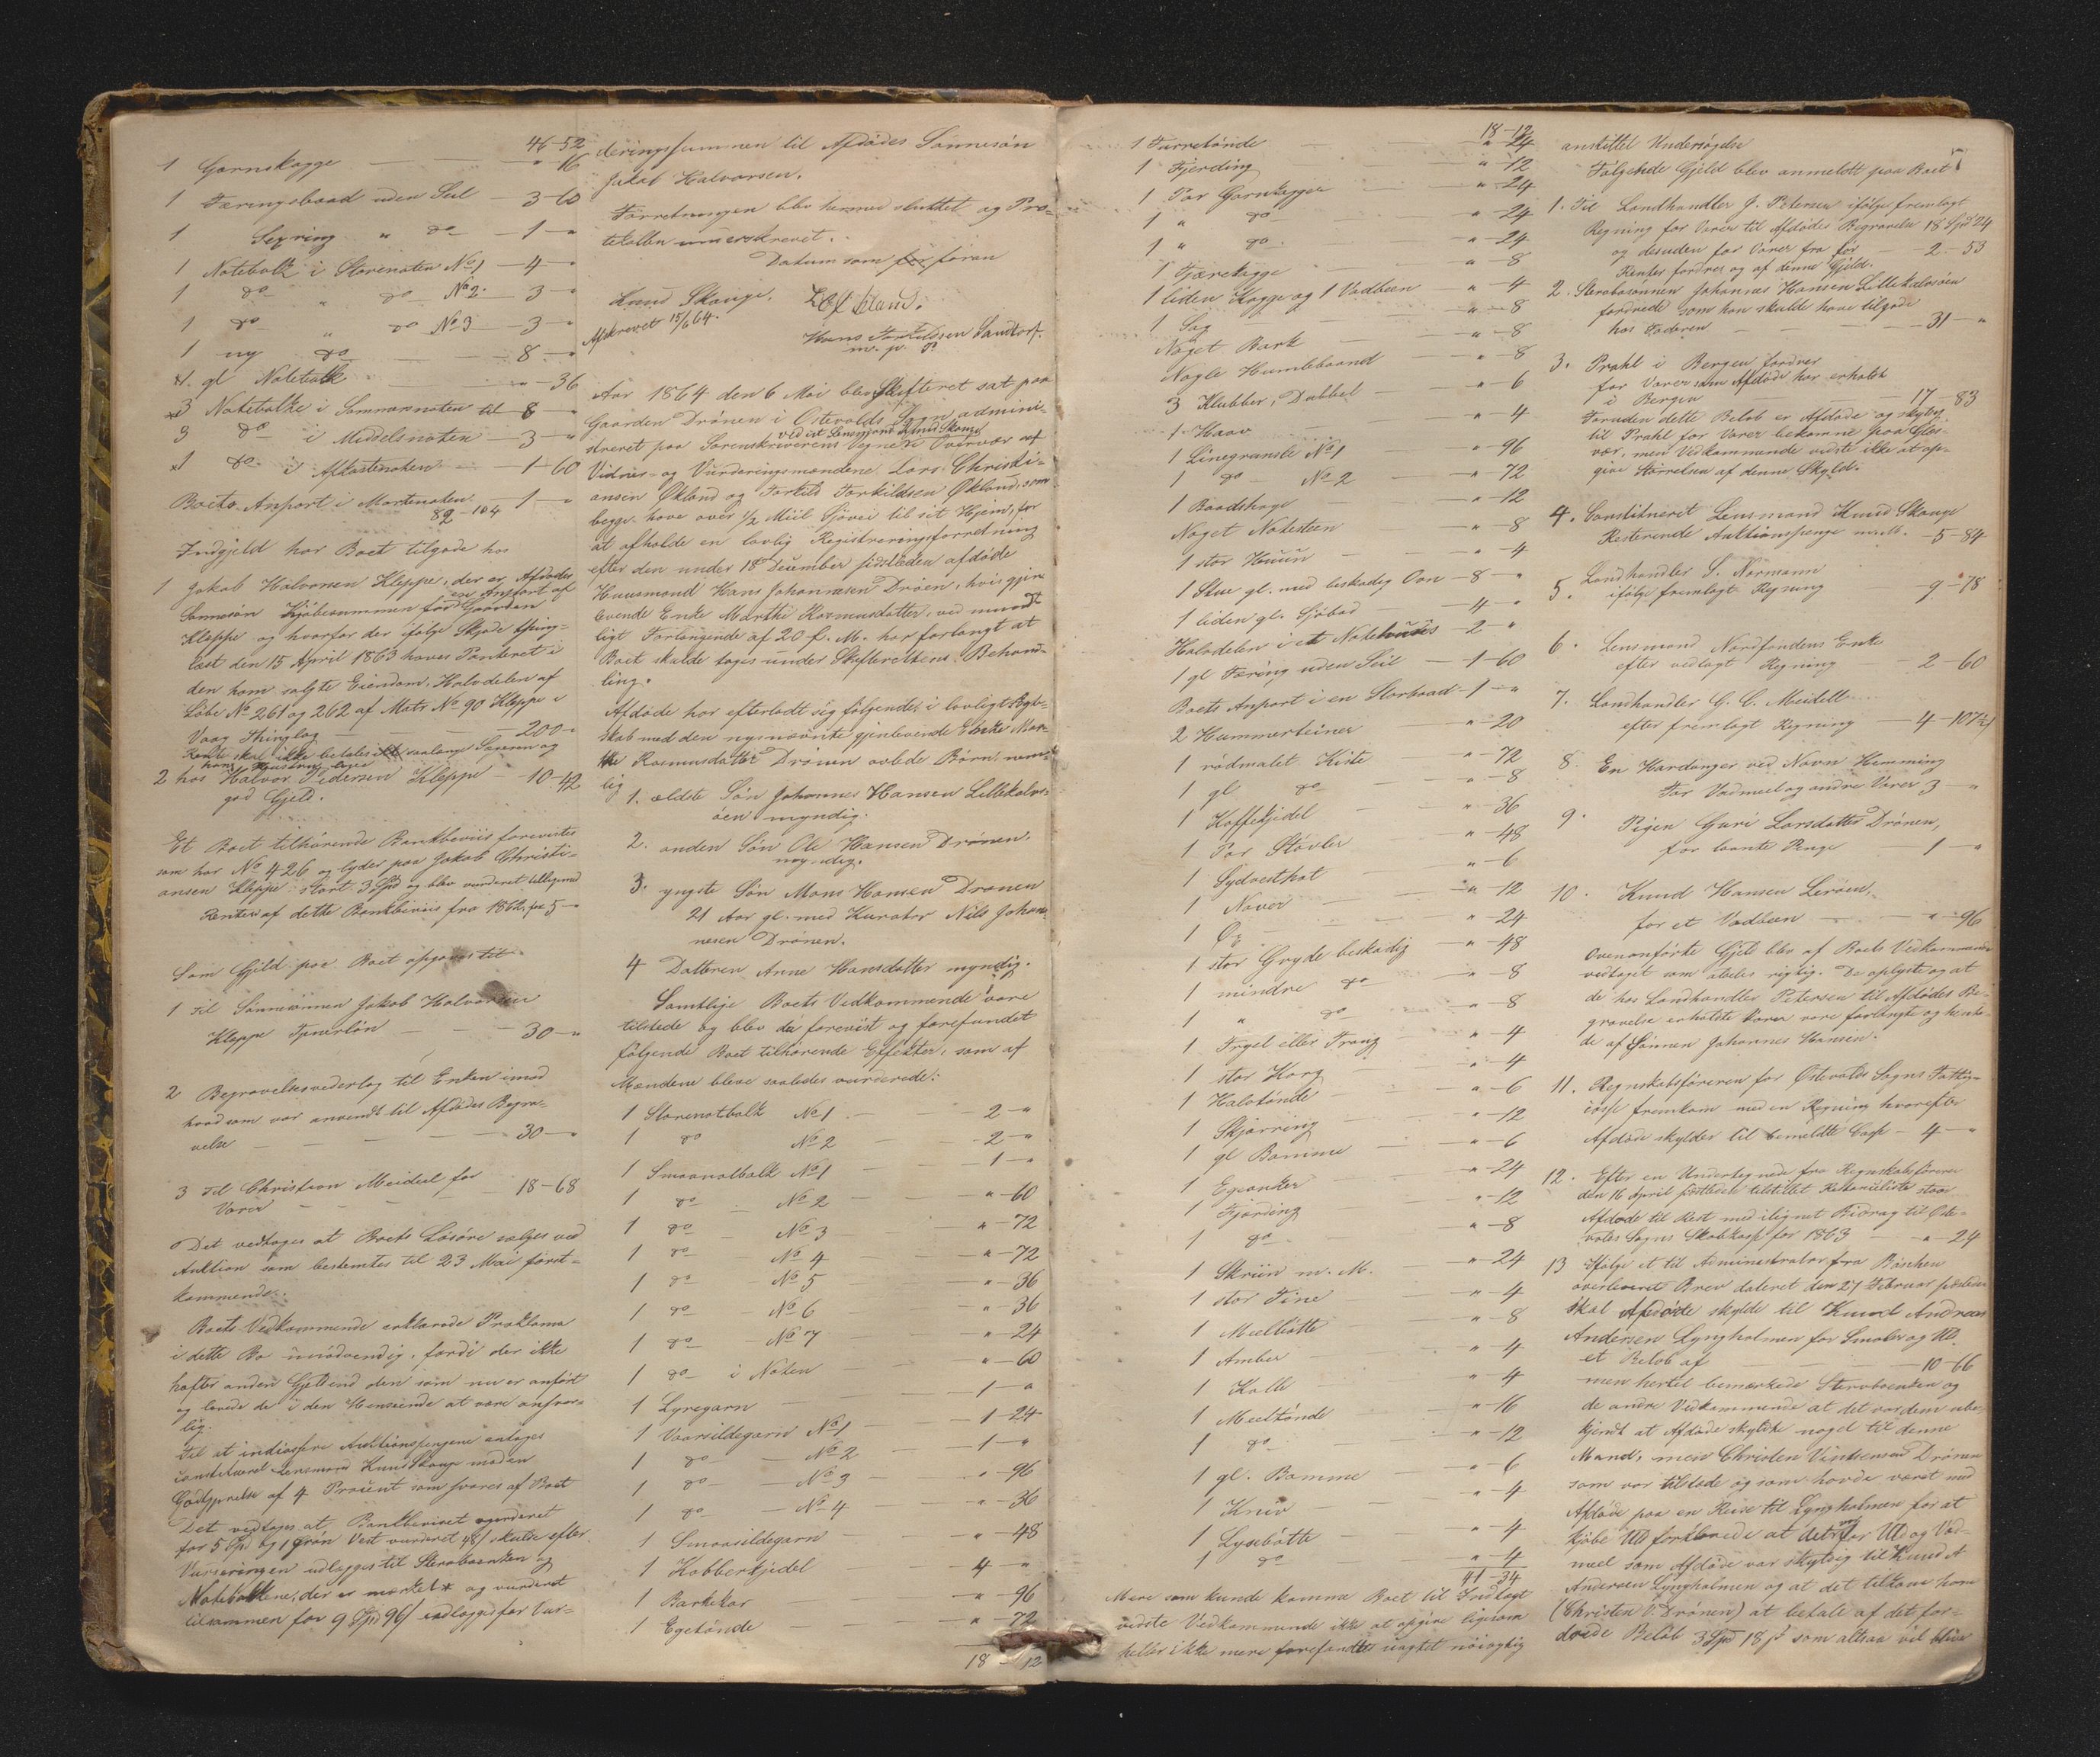 46-52
1 Garnskagge - " 16
1 Færingsbaad uden Seil - 3-60
1 Sexring " do - 1-"
1 Notebolk i Storenoten No 1 - 4-"
1 do " do No 2 - 3-"
1 do " do No 3 - 3-"
1 ny do - 8-"
1 gl Notebolk - "-36
3 Notebolke i Sommernoten til 8-"
3 do i Middelsnoten - 3-"
1 do i Aftastenoten - 1-60
Boets Anport i Mortenoten - 1-"
82-104
Indgjeld har Boet tilgode hos
1 Jakob Halvorsen Kleppe, der er Afdødes
Sønnesøn Kjøbesummen for en Anport af Gaarden
Kleppe og hvorfor der ifølge Skjøde thing-
læst den 15 April 1863 haves Panteret i
den ham solgte Eiendom, Halvdelen af
Løbe No 261 og 262 af Matr No 90 Kleppe i
Vaag Thinglag - 200-"
Rente skal ikke betales saalænge Sønnen og
hans Hustru lever
2 hos Halvor Pedersen Kleppe - 10-42
god Gjeld.
Et Boet tilhørende Bankbeviis forevistes
som har No 426 og lyder paa Jakob Christi-
ansen Kleppe stort 3 Spd og blev vurderet tilligemed
Renter af dette Bankbeviis fra 1862, for 5-"
Som Gjeld paa Boet opgaves til
1 til Sønnesønnen Jakob Halvorsen
Kleppe Tjenerløn - 30-"
2 Begravelsesvederlag til Enken imod
hvad som var anvendt til Afdødes Begra-
velse - 30-"
3 til Christian Meidell for
Varer - 18-68
Det vedtages at Boets Løsøre sælges ved
Auktion som bestemtes til 23 Mai først-
kommende.
Boets Vedkommende erklærede Proklama
i dette Bo unødvendig, fordi der ikke
hafter anden Gjeld end den som nu er anført
og lovede de i den Henseende at være ansvar-
lig.
Til at indkassere Auktionspengene antages
constitueret Lensmand Knud Skauge mod en
Godtgjørelse af 4 Procent som svares af Boet
Det vedtages at Bankbeviset vurderet
for 5 Spd og 1 grøn Vest vurderet 48 s skulde efter
Vurderingen udlægges til Stervboenken og
Notebolkene, der er mærket * og vurderet
tilsammen for 9 Spd 96 s udlægges for Vur-
deringssummen til Afdødes Sønnesøn
Jakob Halvorsen.
Forretningen blev hermed sluttet og Pro-
tokollen underskrevet.
Datum som før foran
Knud Skauge. L. Østland.
Afskrevet 15/6 64. Hans Torkildsen Sandtorf.
m. p. P.
Aar 1864 den 6 Mai blev Skifteret sat paa
Gaarden Drönen i Østevolds Sogn, admini-
streret paa Sorenskriverens Vegne ved cst Lensmand Knud Skauge i Overvær af
Vidnes- og Vurderingsmændene Lars Christi-
ansen Økland og Torkild Torkildsen Økland, som
begge have over 1/2 Miil Sjøvei til sit Hjem, for
at afholde en lovlig Registreringsforretning
efter den under 18 December sidstleden afdøde
Huusmand Hans Johannesen Drøen, hvis gjen
levende Enke Marthe Rasmusdatter, ved mundt-
ligt Forlangende af 20 f. M. har forlangt at
Boet skulde tages under Skifterettens Behand-
ling.
Afdøde har efterladt sig følgende, i lovligt Ægte-
skab med den nysnævnte gjenlevende Enke Mar-
the Rasmusdatter Drönen avlede Børn, nem-
lig
1. ældste Søn Johannes Hansen Lillekalvs-
øen myndig.
2. anden Søn Ole Hansen Drönen,
myndig.
3. yngste Søn Mons Hansen Drönen
21 Aar gl. med Kurator Nils Johan-
nesen Drönen.
4 Datteren Anne Hansdatter myndig.
Samtlige Boets Vedkommende vare
tilstede og blev der forevist og forefundet
følgende Boet tilhørende Effekter, som af
Mændene bleve saaledes vurderede:
1 Storenotbolk No 1 - 2-"
1 do No 2 - 2-"
1 Smaanotbolk No 1 - 1-"
1 do No 2 - "-60
1 do No 3 - "-72
1 do No 4 - "-72
1 do No 5 - "-36
1 do No 6 - "-36
1 do No 7 - "-24
1 do i Noten - "-60
1 Lyregarn - 1-"
1 Vaarsildegarn No 1 - 1-24
1 do No 2 - 1-"
1 do No 3 - "-96
1 do No 4 - "-36
1 Smaasildegarn - "-48
1 Kobberkjedel - 4-"
1 Barkekar - "-96
1 Egetönde - "-72
18-12
18-12
1 Furretönde - "-24
1 Fjerding - "-12
1 Par Garnkagger - "-24
1 " do - "-24
1 " do - "-24
1 Tjærekagge - "-8
1 liden Kagge og 1 Vadbeen - "-4
1 Sag - "-8
Noget Bark - "-8
Nogle Humlebaand - "-8
3 Klubber, Dubbel - "-6
1 Haav - "-4
1 Linegranste No 1 - "-96
1 do No 2 - "-72
1 Baadshage - "-12
Noget Notesteen - "-8
1 stor Kuun - "-4
1 Stue gl. med beskadig Oon - 8-"
1 liden gl. Sjöbod - 4-"
Halvdelen i et Notehuus - 2-"
1 gl Færing uden Seil - 1-60
Boets Anport i en Storbaad - 1-"
2 Hummerteiner - "-20
1 rødmalet Kiste - "-72
1 gl do - "-8
1 Kaffekjedel - "-36
1 Par Støvler - "-48
1 Sydvesthat - "-6
1 Naver - "-12
1 Øx - "-24
1 stor Gryde beskadig - "-48
1 mindre do - "-8
1 " do - "-8
1 Trygel eller Traug - "-4
1 stor Korg - "-4
1 Halvtönde - "-6
1 Skjørring - "-12
1 gl Bamme - "-6
1 Egeanker - "-24
1 Fjerding - "-12
1 do - "-8
1 Skriin m. M. - "-24
1 stor Tine - "-4
1 Meelbøtte - "-8
1 Amber - "-4
1 Kolle - "-4
1 Meeltönde - "-16
1 do - "-12
1 gl. Bomme - "-6
1 Kniv - "-4
1 Lysebøtte - "-4
1 do - "-4
41-34
Mere som kunde komme Boet til Indtægt
vidste Vedkommende ikke at opgive ligesom
heller ikke mere forefandtes uagtet nöiagtig
anstillet Undersøgelse
Følgende Gjeld blev anmeldt paa Boet
1. Til Landhandler J. Petersen ifølge fremlagt
Regning for Varer til Afdødes Begravelse 18 Spd 24
og desuden for Varer fra før - 2-53
Renter fordres og af denne Gjeld.
2. Stervbosønnen Johannes Hansen Lillekalvsøen
fordrede som han skulde have tilgode
hos Faderen - 31-"
3. Prahl i Bergen fordrer
for Varer som Afdøde har erholdt
i Bergen - 17-83
Foruden dette Beløb er Afdøde og skyldig
til Prahl for Varer bekomne paa Glæs-
vær, men Vedkommende vidste ikke at op-
give Størrelsen af denne Skyld.
4. Constitueret Lensmand Knud Skauge
Resterende Auktionspenge - 5-84
5. Landhandler S. Normann
ifølge fremlagt Regning - 9-78
6. Lensmand Nordfondens Enke
efter vedlagt Regning - 2-60
7. Landhandler G. C. Meidell
efter fremlagt Regning - 4-107 1/2
8. En Hardanger ved Navn Hemming
for Vadmeel og andre Varer 3-"
9. Pigen Guri Larsdatter Drönen,
for laante Penge - 1-"
10. Knud Hansen Lerøen,
for et Vadbeen - "-96
Ovenanførte Gjeld blev af Boets Vedkommende
vedtaget som aldeles rigtig. De oplyste og at
de hos Landhandler Petersen til Afdødes Be-
gravelse erholdte Varer vare forlangte og hente-
de af Sønnen Johannes Hansen.
11. Regnskabsføreren for Østevolds Sogns Fattig-
casse fremkom med en Regning hvorefter
Afdøde skylder til bemeldte Casse - 4-"
12. Efter en Undertegnede fra Regnskabsføreren
den 16 April sidstleden tilstillet Restanceliste staar
Afdøde til Rest med ilignet Bidrag til Øste-
volds Sogns Skolekasse for 1863 - "-24
13 Ifølge et til Administrator fra Böschen
overleveret Brev dateret den 27 Februar sidstleden
skal Afdøde skylde til Knud Andreas
Andersen Lyngholmen for Smaler og Uld
et Beløb af - 10-66
men hertil bemærkede Stervboenken og
de andre Vedkommende at det var dem ube-
kjendt at Afdøde skyldte noget til denne
Mand, men Christen Vindsensen Drönen
som var tilstede og som havde været med
Afdøde paa en Reise til Lyngholmen for at
kjøbe Uld forklarede at det var for Uld og Vad-
meel som Afdøde var skyldig til Knud A
Andersen Lyngholmen og at det tilkom ham
(Christen V. Drönen) at betale af det for-
drede Beløb 3 Spd 18 s som altsaa vil blive